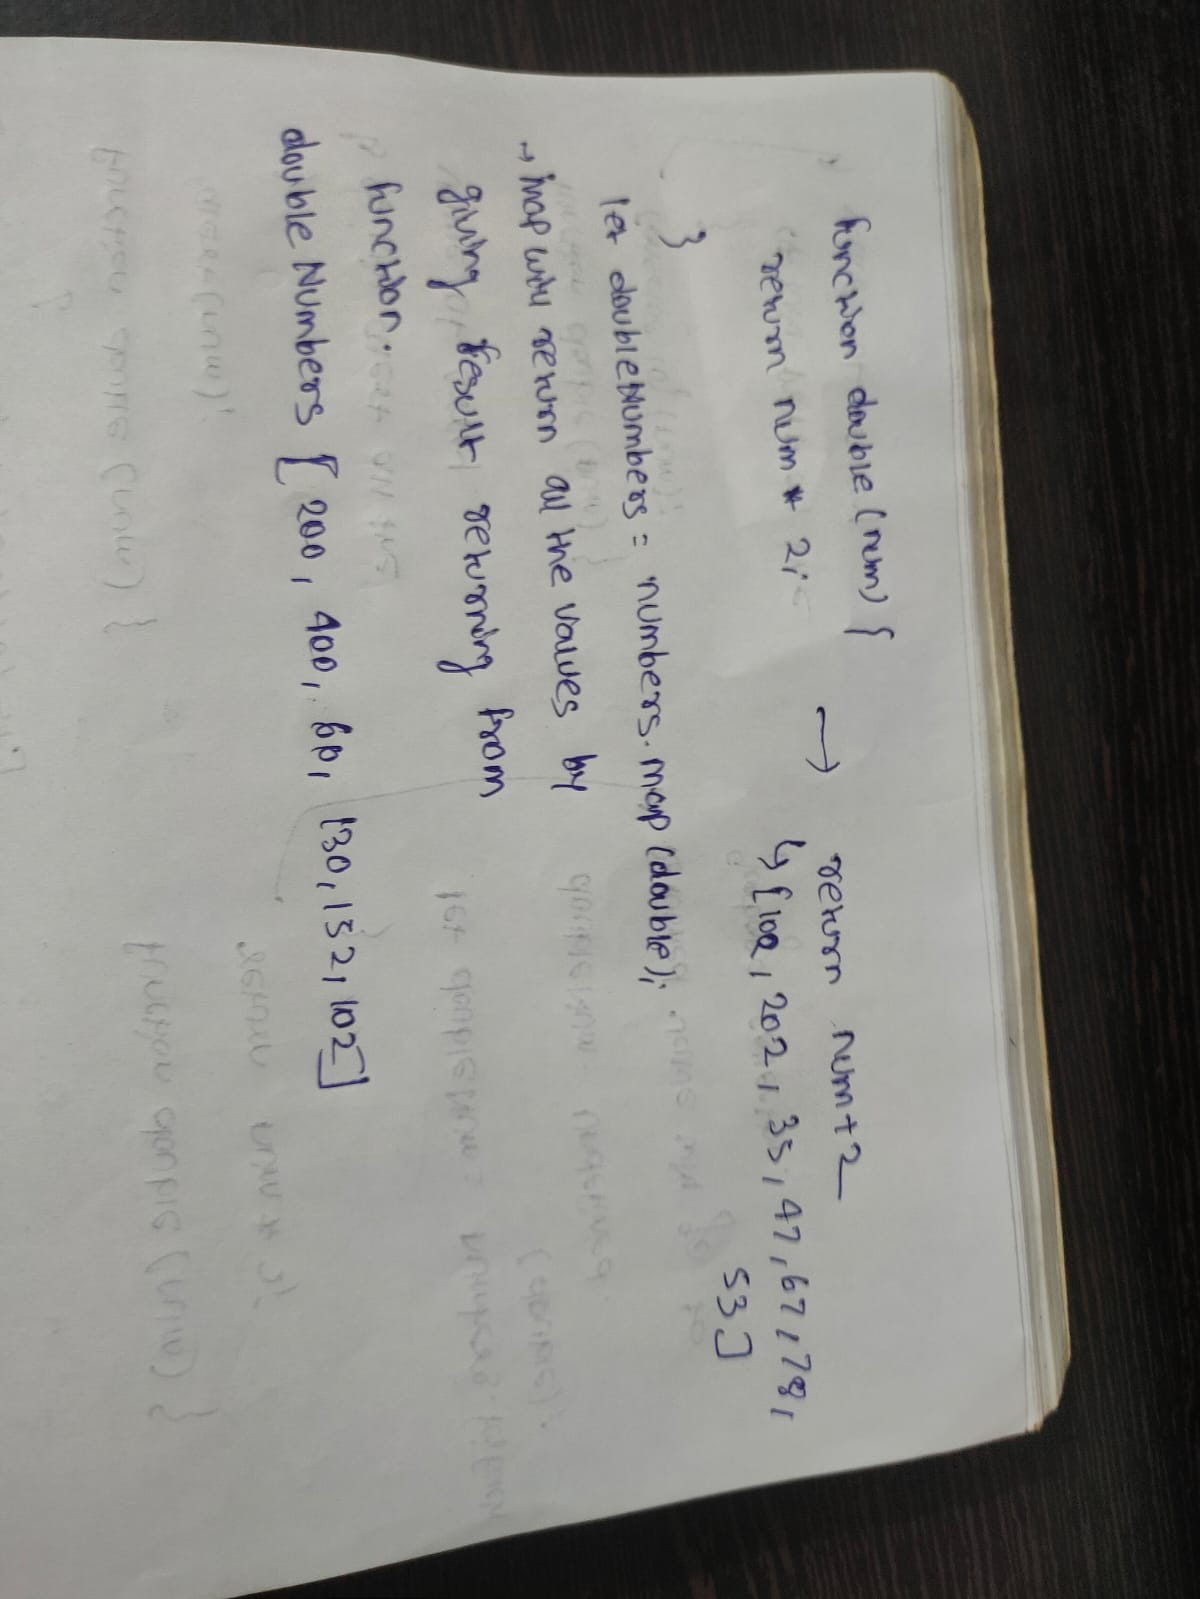 function double (num) {
return num * 2;
→ return num+2
↳ [102, 202, 35, 47, 67, 78,
53]
}
let doubleNumbers = numbers.map(double);
→ map will return all the values by
giving result returning from
function.
double Numbers [200, 400, 60, 130, 152, 102]